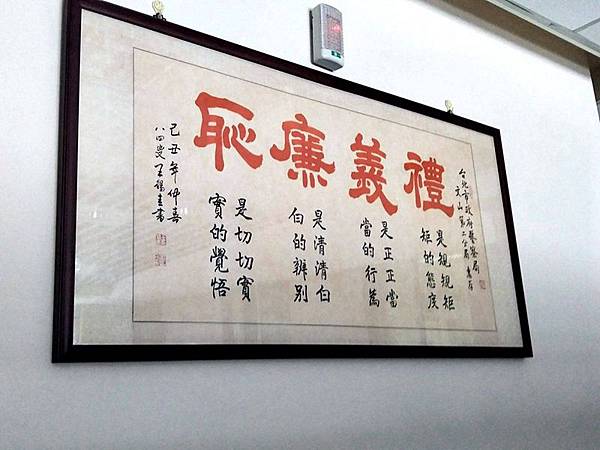 台北市政府警察局
文山第二分局 惠存
禮義廉恥
是規規矩
矩的態度
是正正當
當的行為
是清清白
白的辨別
是切切實
實的覺悟
己丑年仲
八四叟王書